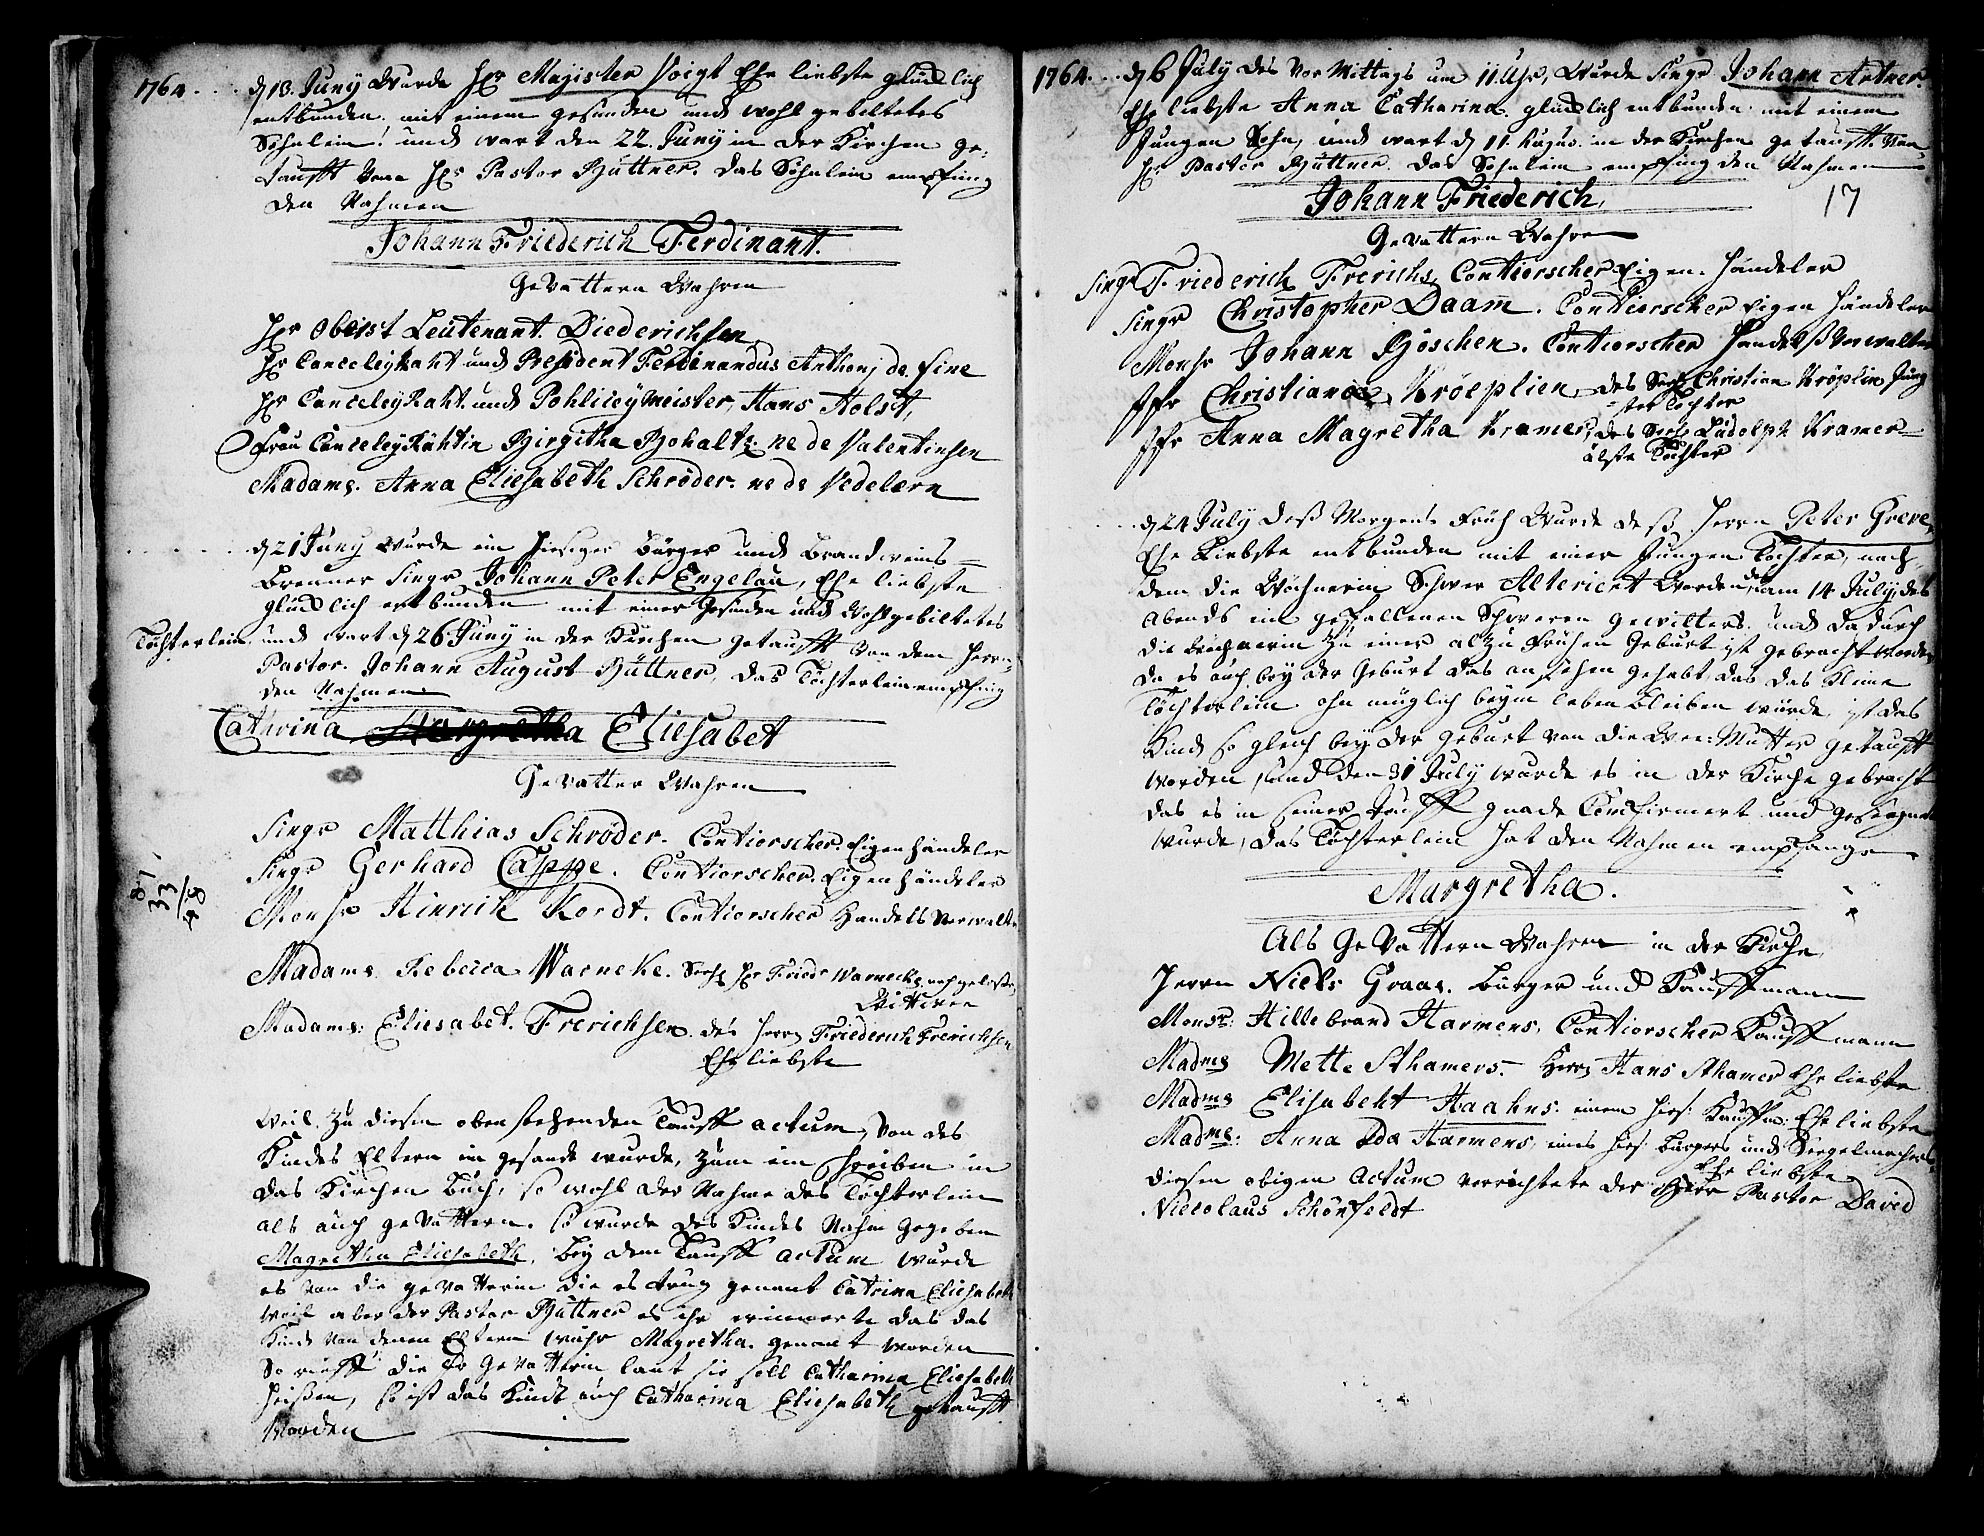 1764. d 13. Juny Wurde Hr Magister Voigt Ehe liebste glücklich
entbunden mit einem gesunden und wohl gebiltetes
Söhnlein! und wart den 22. Juny in der Kirchen ge-
taufft Von Hr Pastor Büttner. Das Söhnlein empfing
den Nahmen
Johann Friederich Ferdinant.
Gevattern Wahren
Hr Oberst Leutenant. Diederichsen
Hr Canceleyraht und President Ferdinandus Anthonj de fine
Hr Canceley Raht und Pohliceymeister, Hans Holst,
Frau Canceley Rähtin Birgitha Bohalt. ne de Valentinsen
Madams. Anna Eliesabeth Schrøder. ne de Vedelærn
d 21 Juny Wurde ein hiesiger Bürger und Brandweins-
brenner Singr Johann Peter Engelau, Ehe liebste
glücklich entbunden mit einer Gesunden und Wohlgebiltetes
Töchterlein und wart d 26. Juny in der Kirchen getaufft Von dem Herrn
Pastor. Johann August Büttner, das Töchterlein empfing
den Nahmen
Cathrina Margretha Eliesabet
Gevatter Wahren
Singr Matthias Schrøder. Contiorscher. Eigenhändeler
Singr Gerhard Cappe. Contiorscher. Eigenhändeler
81
33
48
Monsr Hinrich Kordt. Contiorscher Handels Verwalter
Madams. Rebecca Warneke. Seel. Hr Friedr Warnecke nachgelaßne
Wittwen
Madams: Eliesabet. Frerichsen. des Herrn Friederich Frerichsen
Ehe liebste
Weil zu diesem obenstehenden Tauff actum, von des
Kindes Eltern eingesandt wurde, zum einschreiben in
das Kirchen Buch, so wohl der Nahme des Töchterlein
als auch gevattern. So wurde des Kindes Nahm gegeben
Magretha Eliesabeth, bey dem Tauff actum wurde
es von die gevatterin die es trug genant Catrina Eliesabeth
weil aber der Pastor Büttner es ihr erinnerte das das
Kind von denen Eltern wahr Magretha. genant worden
So rieff die Gevatterin laut sie soll Catharina Eliesabeth
heißen, so ist das Kindt auch Catharina Eliesabeth getaufft
Worden
1764. d 6 July des Vor Mittags um 11 Uhr, Wurde Singr Johann Artner.
Ehe liebste Anna Catharina. glücklich entbunden mit einem
Jungen Sohn, und wart d 11. hujus. in der Kirchen getaufft. Von
Hr Pastor Büttner. das Söhnlein empfing den Nahmen
Johann Friederich,
17
Gevattern Wahren
Singr Friederich Frerichs, Contiorscher Eigen. händeler
Singr Christopher Daam. Contiorscher Eigen händeler
Monsr Johann Böschen. Contiorscher Handelß Verwalter
Jfr Christiana Krøeplien, des Seel. Christian Krøplin Jüng-
ster Tochter
Jfr Anna Magretha Kramer, des Seel. Ludolph Kramer
älste Tochter
d 24 July deß Morgens Früh Wurde deß Herrn Peter Greve,
Ehe Liebste entbunden mit einer Jungen Tochter, nach-
dem die Wöchnerin Schwer Altericrt Worden, am 14 July des
abends ein gefallenen Schweren gewitters. und dadurch
die zu einer alzu Frühen Geburt ist gebracht worden
da es auch bey der Geburt das ansehen gehabt, das das Kleine
Töchterlein ohn müglich beym leben bleiben würde, ist das
Kind so gleich bey der geburt von die Mutter getaufft
worden, und den 31 July wurde es in der Kirche gebracht
das es in seiner Tauff gnade Confirmert und gesegnet
wurde, das Töchterlein hat den Nahmen empfangen
Margretha.
Als Gevattern Wahren in der Kirche
Herrn Niels Graae. bürger und Kauffmann
Monsr: Hillebrand Harmens, Contiorscher Kauffmann
Madms Mette Sthamers. Herrn Hans Sthamer Ehe liebste
Madms Elisabeht Haahns. einem hies: Kauffm: Ehe liebste
Madms: Anna Ida Harmens, eines hies: bürgers und Seegelmachers
Ehe liebste
diesen obigen Actum verrichtete der Herr Pastor David
Niccolaus Schönfeldt